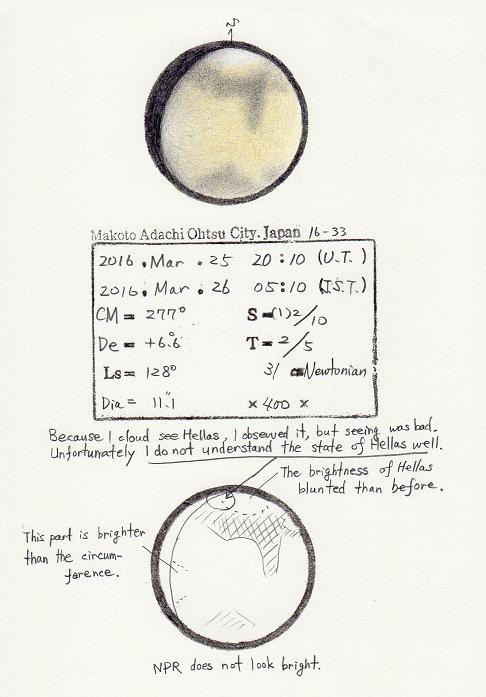 S
Makoto Adachi Ohtsu City. Japan 16-33
2016. Mar. 25 20:10 (U.T.)
2016. Mar. 26 05:10 (J.S.T.)
CM = 277° S = (1)2/10
De = +6.6° T = 2/5
Ls = 128° 31 cm Newtonian
Dia = 11".1 × 400 ×
Because I cloud see Hellas, I observed it, but seeing was bad.
Unfortunately I do not understand the state of Hellas well.
The brightness of Hellas
blunted than before.
This part is brighter
than the circum-
ference.
NPR does not look bright.